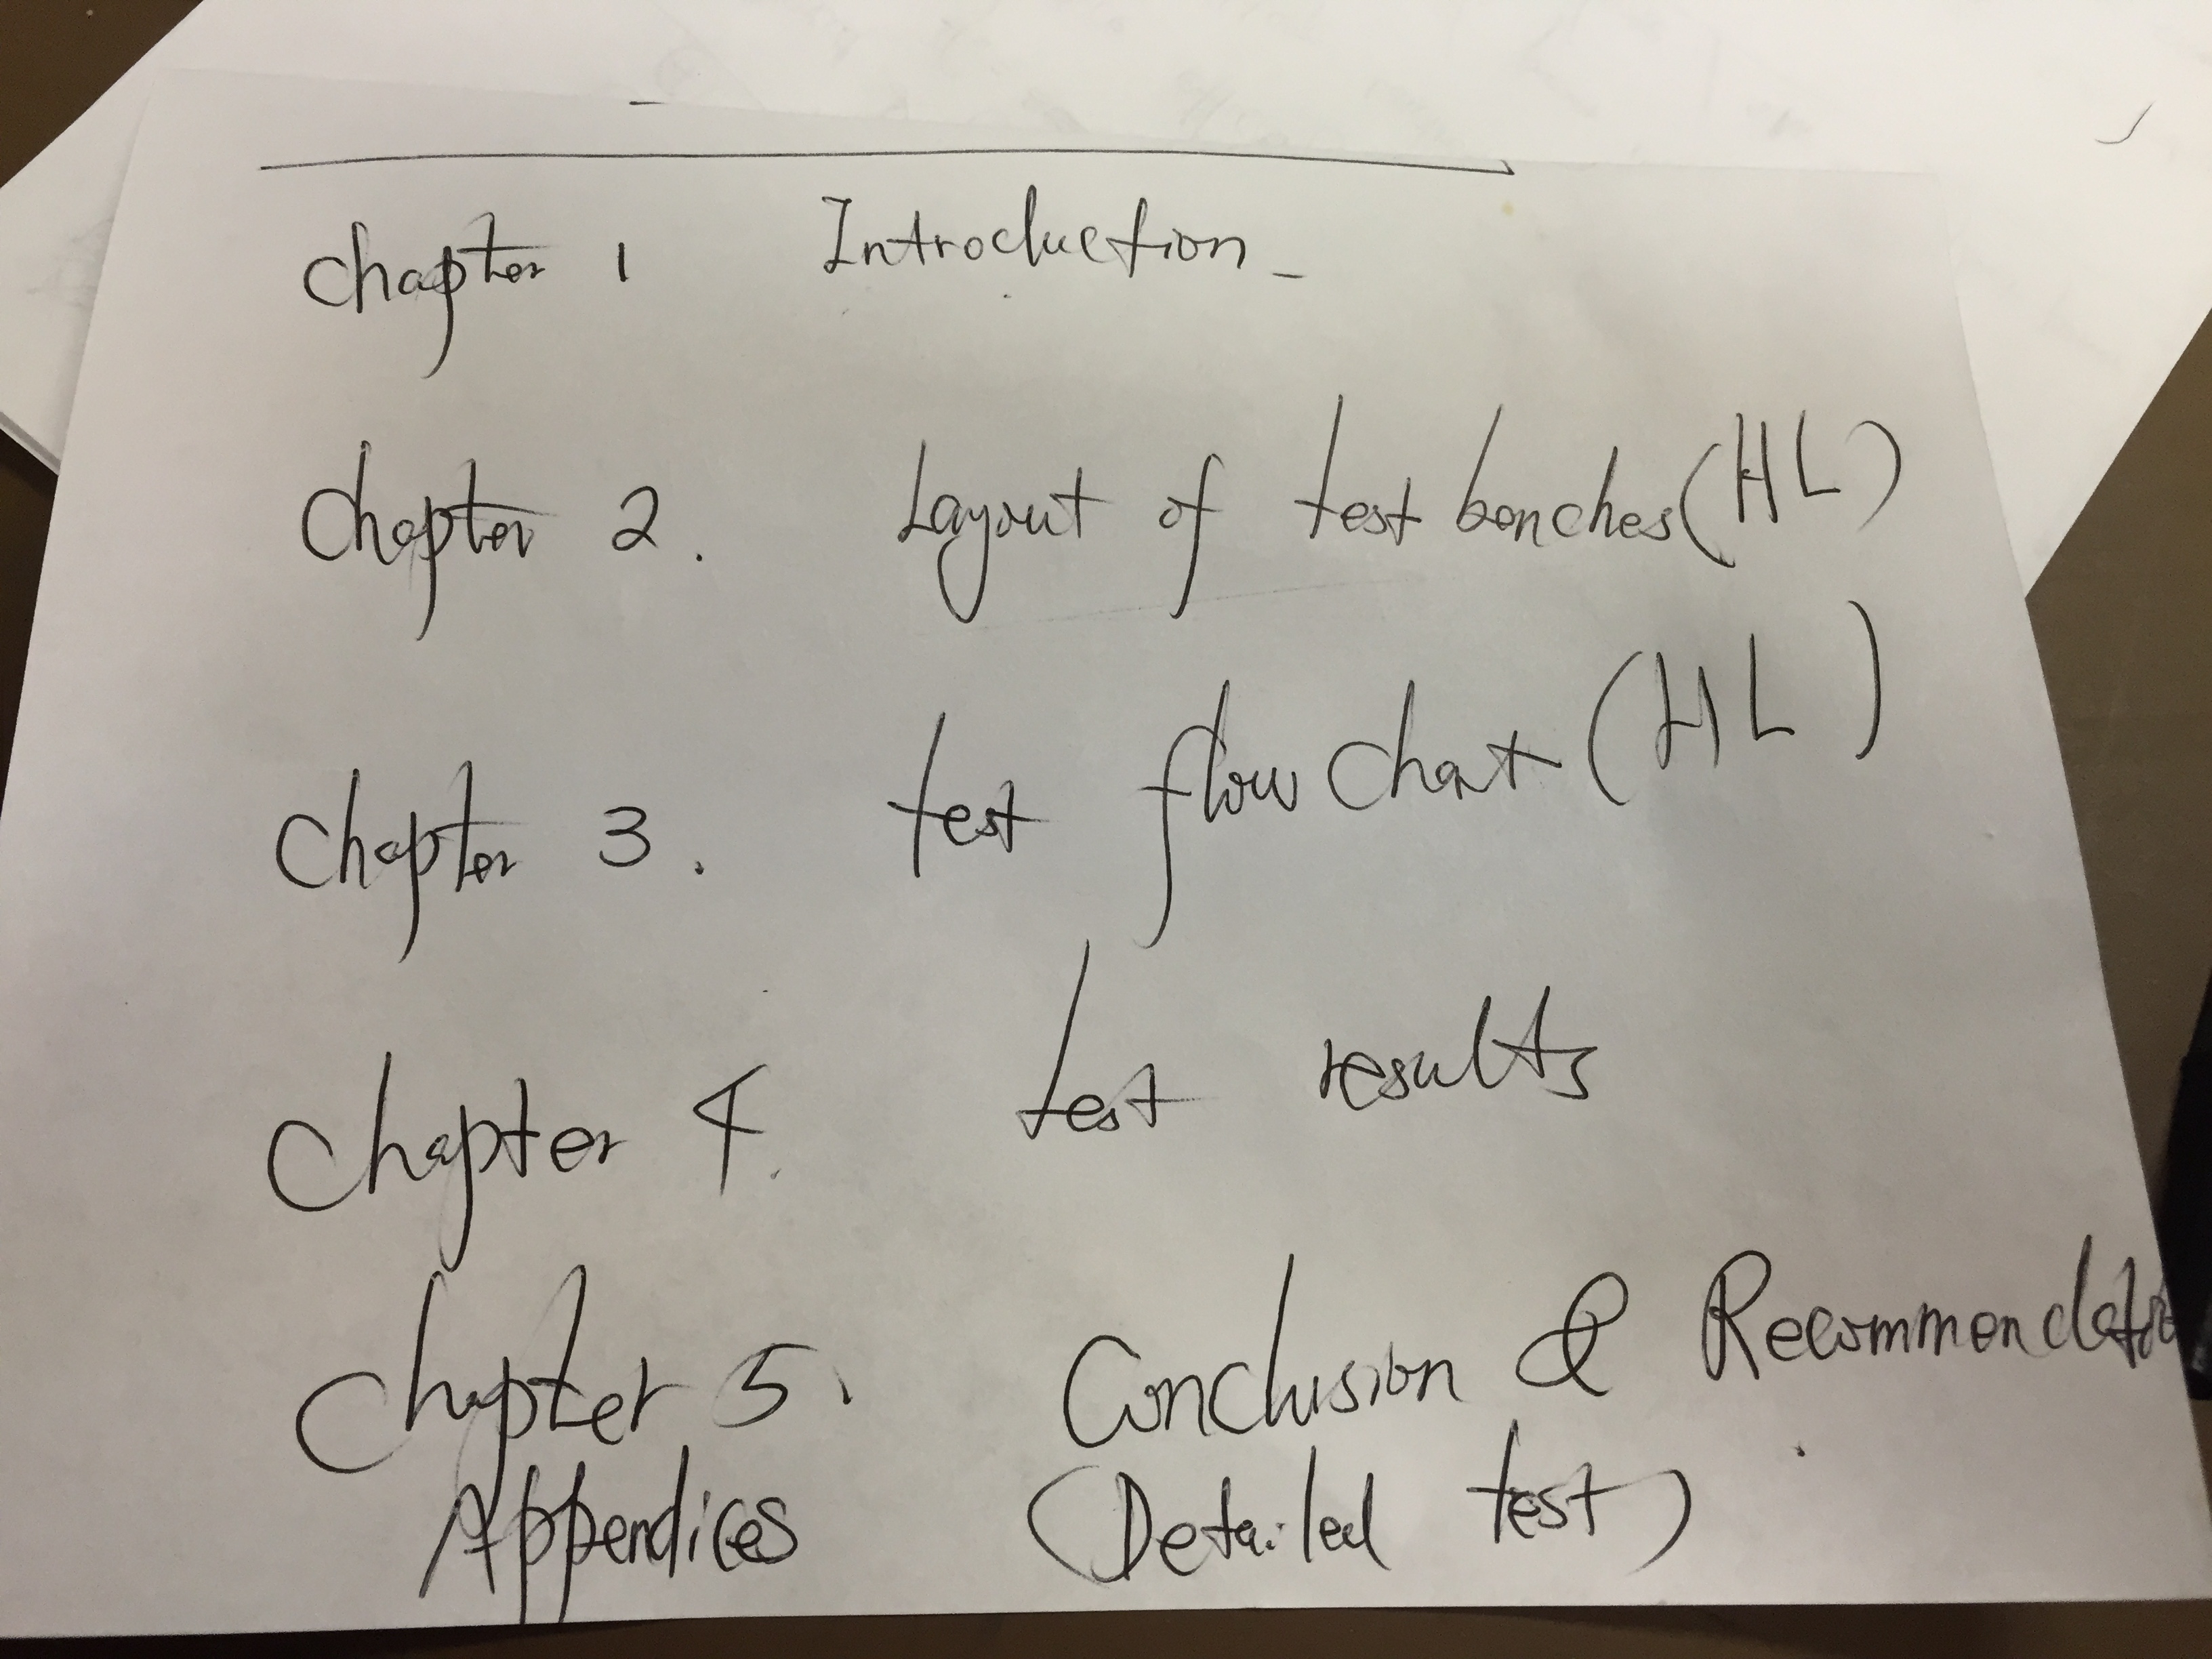 Chapter 1 Introduction
Chapter 2. Layout of test benches (HL)
Chapter 3. test flow chart (HL)
Chapter 4. test results
Chapter 5. Conclusion & Recommendatio
Appendices (Detailed test)